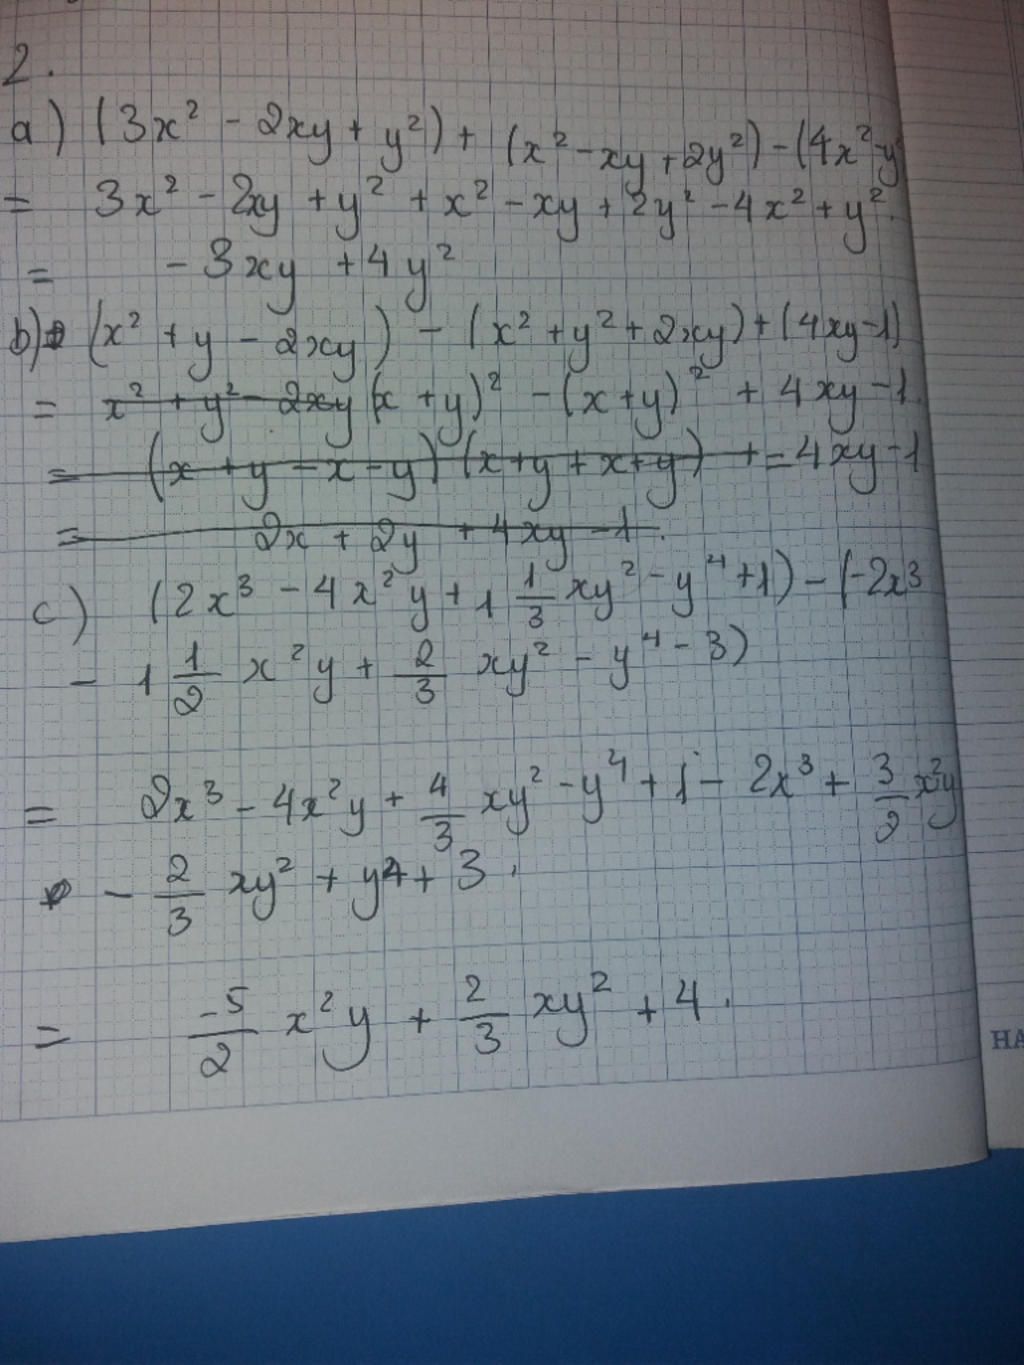 2.
a) (3x² - 2xy + y²) + (x² - xy + 2y²) - (4x² - y²
= 3x² - 2xy + y² + x² - xy + 2y² - 4x² + y².
= - 3xy + 4y²
b) (x² + y - 2xy) - (x² + y² + 2xy) + (4xy - 1)
= x² + y² - 2xy (x + y)² - (x + y)² + 4xy - 1.
= (x + y - x - y) (x + y + x + y) + = 4xy - 1
= 2x + 2y + 4xy - 1.
c) (2x³ - 4x²y + 1 1/3 xy² - y⁴ + 1) - (-2x³
- 1 1/2 x²y + 2/3 xy² - y⁴ - 3)
= 2x³ - 4x²y + 4/3 xy² - y⁴ + 1 - 2x³ + 3/2 x²y
- 2/3 xy² + y⁴ + 3.
= -5/2 x²y + 2/3 xy² + 4.
НА